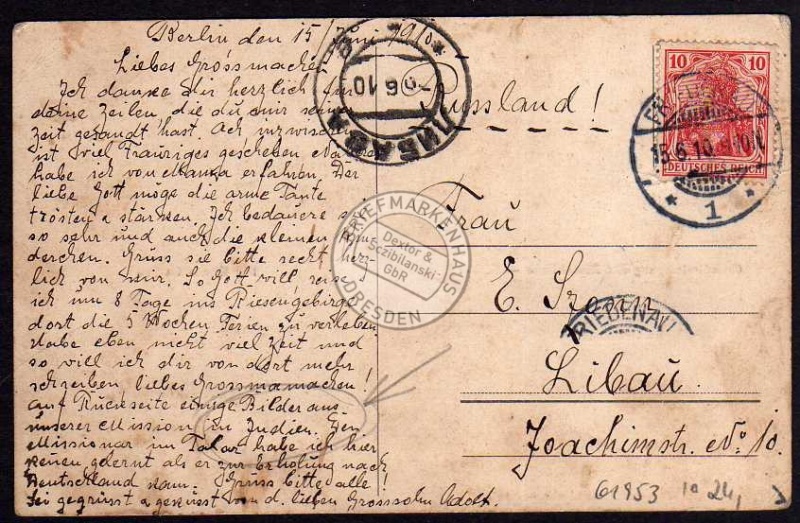 Berlin den 15/Juni 1910.
Liebes Grossmachen
Ich danke dir herzlich für
deine Zeilen, die du mir seiner
Zeit gesandt hast. Ach inzwischen
ist viel Trauriges geschehen
habe ich von Mama erfahren. Der
liebe Gott möge die arme Tante
trösten u stärken. Ich bedauere sie
so sehr und auch die kleinen
derchen. Grüss sie bitte recht herz-
lich von mir. So Gott will reise
ich in 8 Tage ins Riesengebirge
dort die 5 Wochen Ferien zu verleben
Habe eben nicht viel Zeit und
so will ich dir von dort mehr
schreiben liebes Grossmamachen!
auf Rückseite einige Bilder aus
unserer Mission in Indien. Den
Missionar im Talar habe ich hier
kennen gelernt als er zur Erholung nach
Deutschland kam. Grüss bitte alle!
Sei gegrüsst u geküsst von d. lieben Grosssohn Adolf.
ЛИБАВА
6 10
Russland!
10 10
DEUTSCHES REICH
15.6.10
* 1 *
Frau
E.
FRIEDENAU
Libau
Joachimstr. No: 10.
BRIEFMARKENHAUS
Dextor &
Sczibilanski
GbR
DRESDEN
61953 10 24,